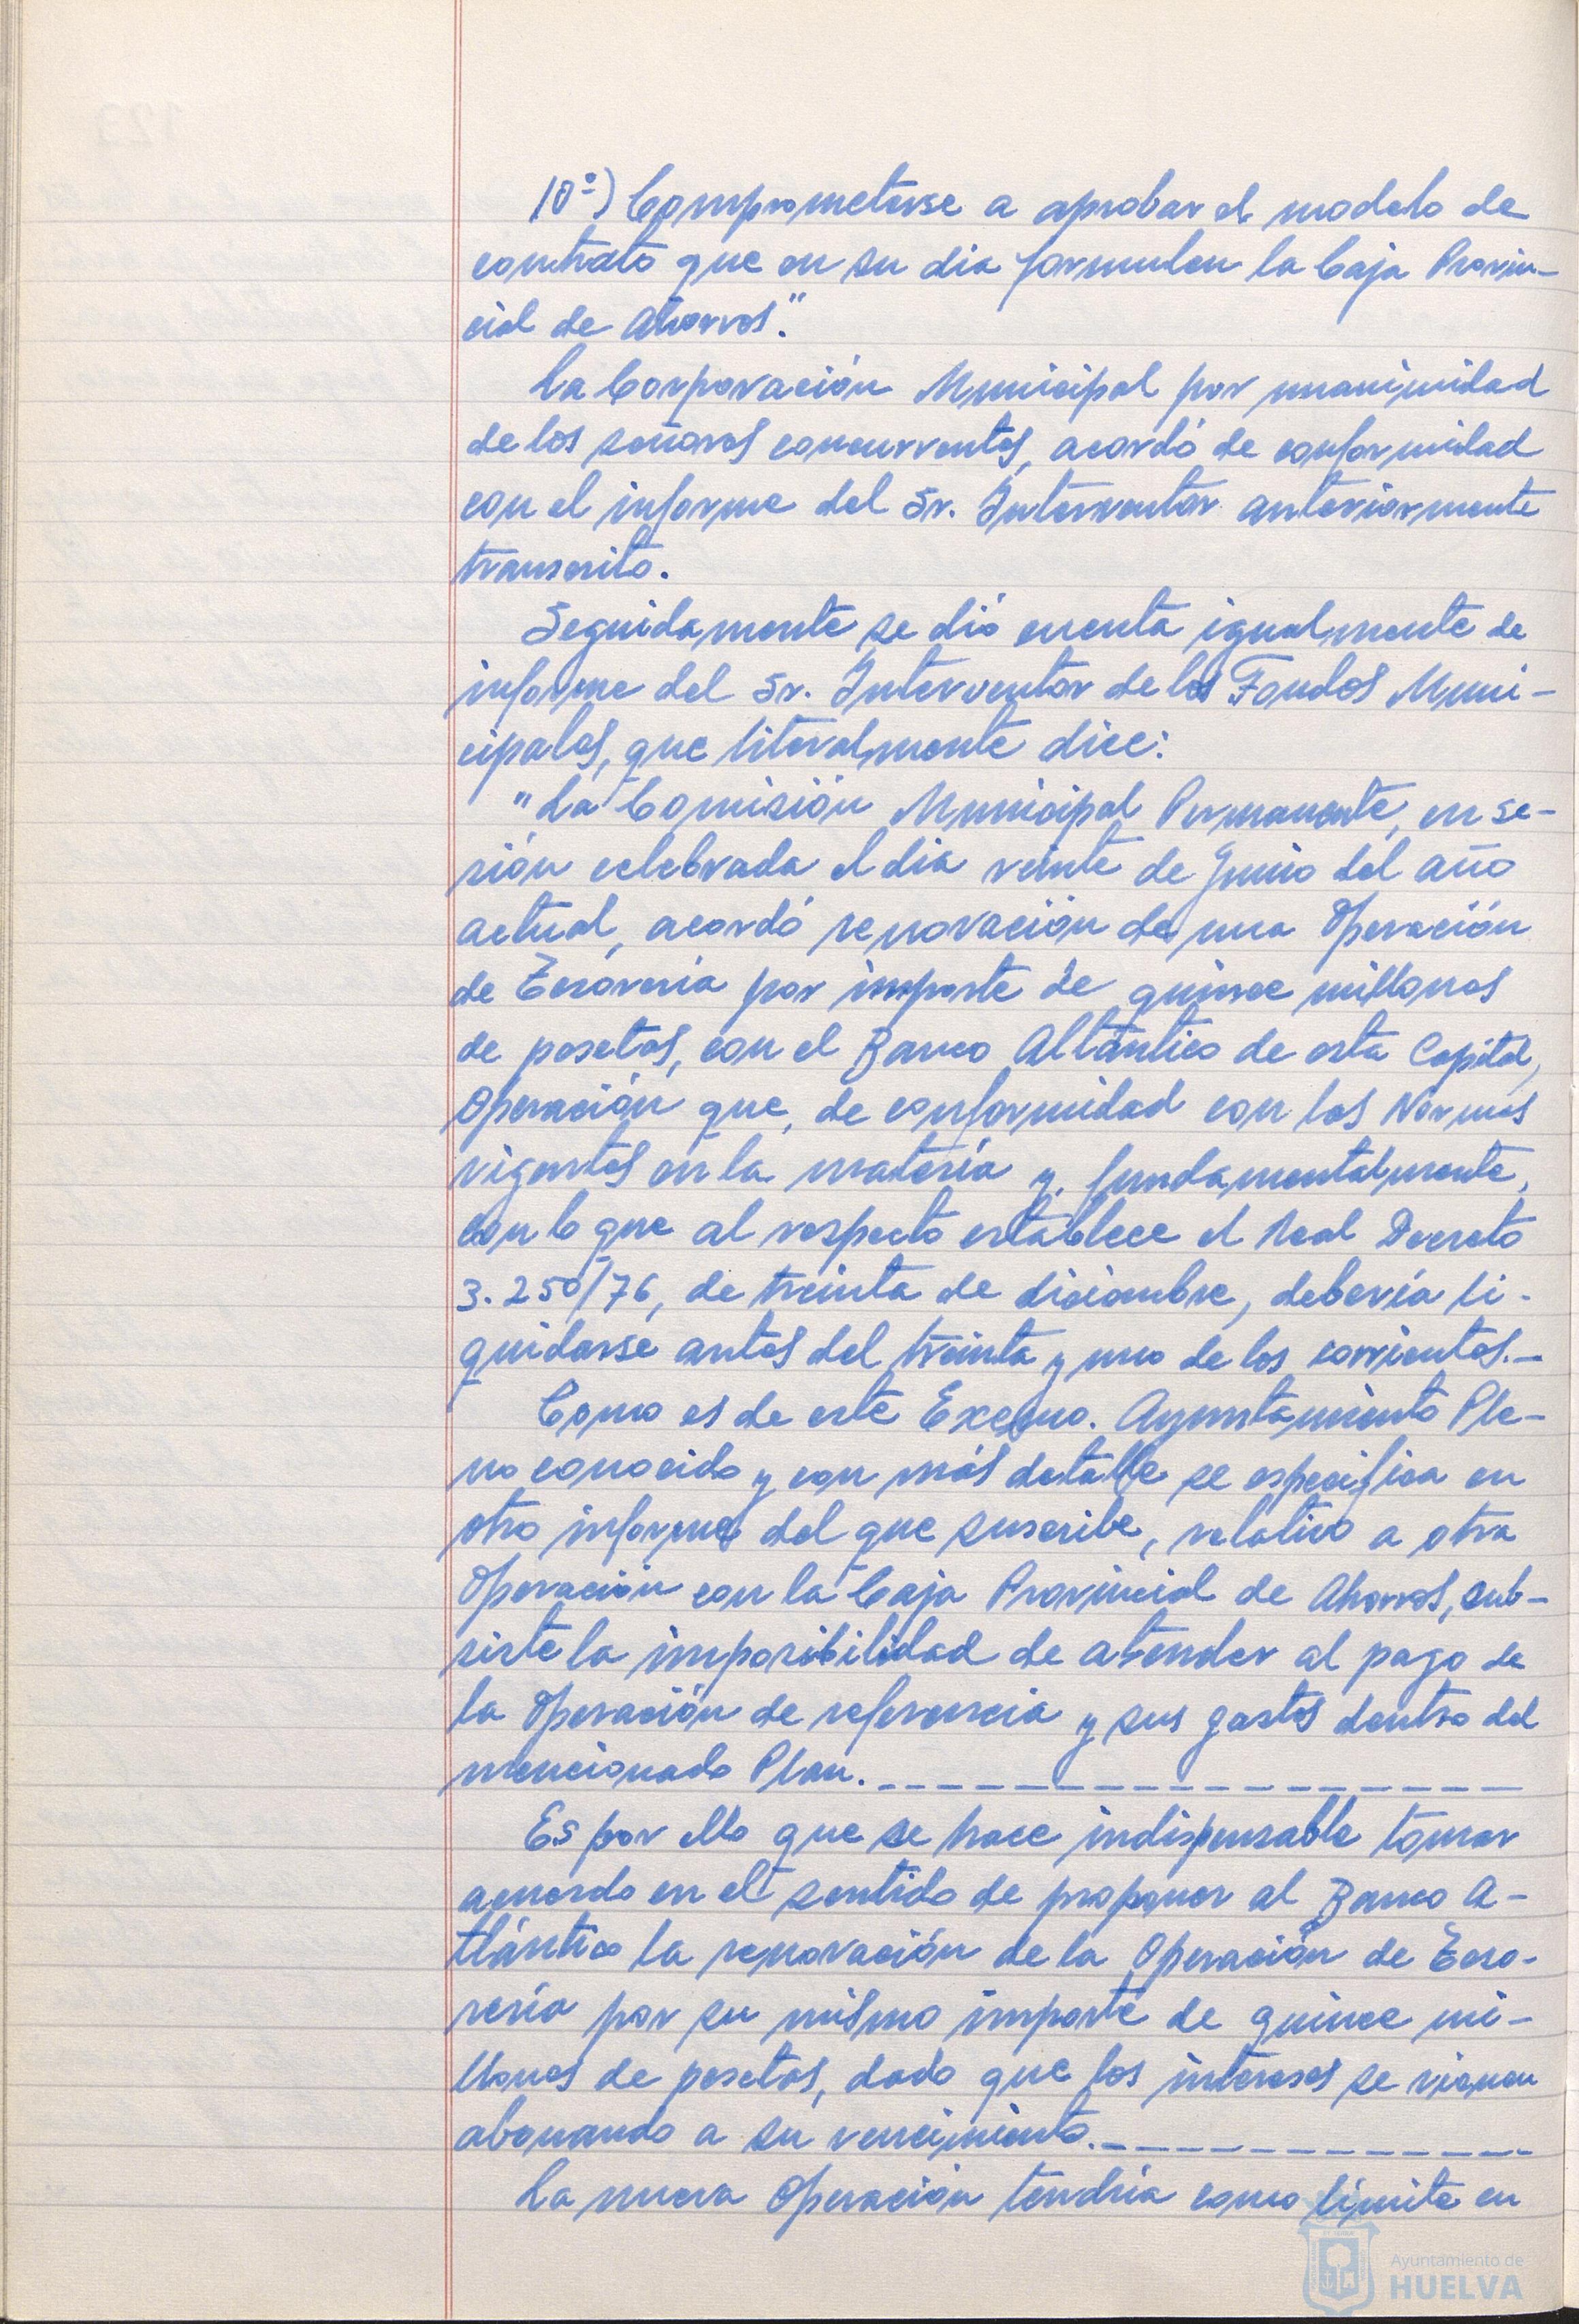 10º) Comprometerse a aprobar el modelo de
contrato que en su dia formulen la Caja Provin-
cial de Ahorros."
La Corporación Municipal por unanimidad
de los señores concurrentes, acordó de conformidad
con el informe del Sr. Interventor anteriormente
transcrito.
Seguidamente se dió cuenta igualmente de
informe del Sr. Interventor de los Fondos Muni-
cipales, que literalmente dice:
"La Comisión Municipal Permanente, en se-
sión celebrada el dia veinte de Junio del año
actual, acordó renovación de una Operación
de Tesoreria por importe de quince millones
de pesetas, con el Banco Altántico de esta Capital,
Operación que, de conformidad con las Normas
vigentes en la materia y, fundamentalmente,
con lo que al respecto establece el Real Decreto
3.250/76, de treinta de diciembre, debería li-
quidarse antes del treinta y uno de los corrientes.-
Como es de este Excmo. Ayuntamiento Ple-
no conocido y con más detalle se especifica en
otro informe del que suscribe, relativo a otra
Operación con la Caja Provincial de Ahorros, sub-
siste la imposibilidad de atender al pago de
la Operación de referencia y sus gastos dentro del
mencionado Plan.
Es por ello que se hace indispensable tomar
acuerdo en el sentido de proponer al Banco A-
tlántico la renovación de la Operación de Teso-
rería por su mismo importe de quince mi-
llones de pesetas, dado que los intereses se vienen
abonando a su vencimiento.
La nueva Operación tendría como límite en
Ayuntamiento de
HUELVA